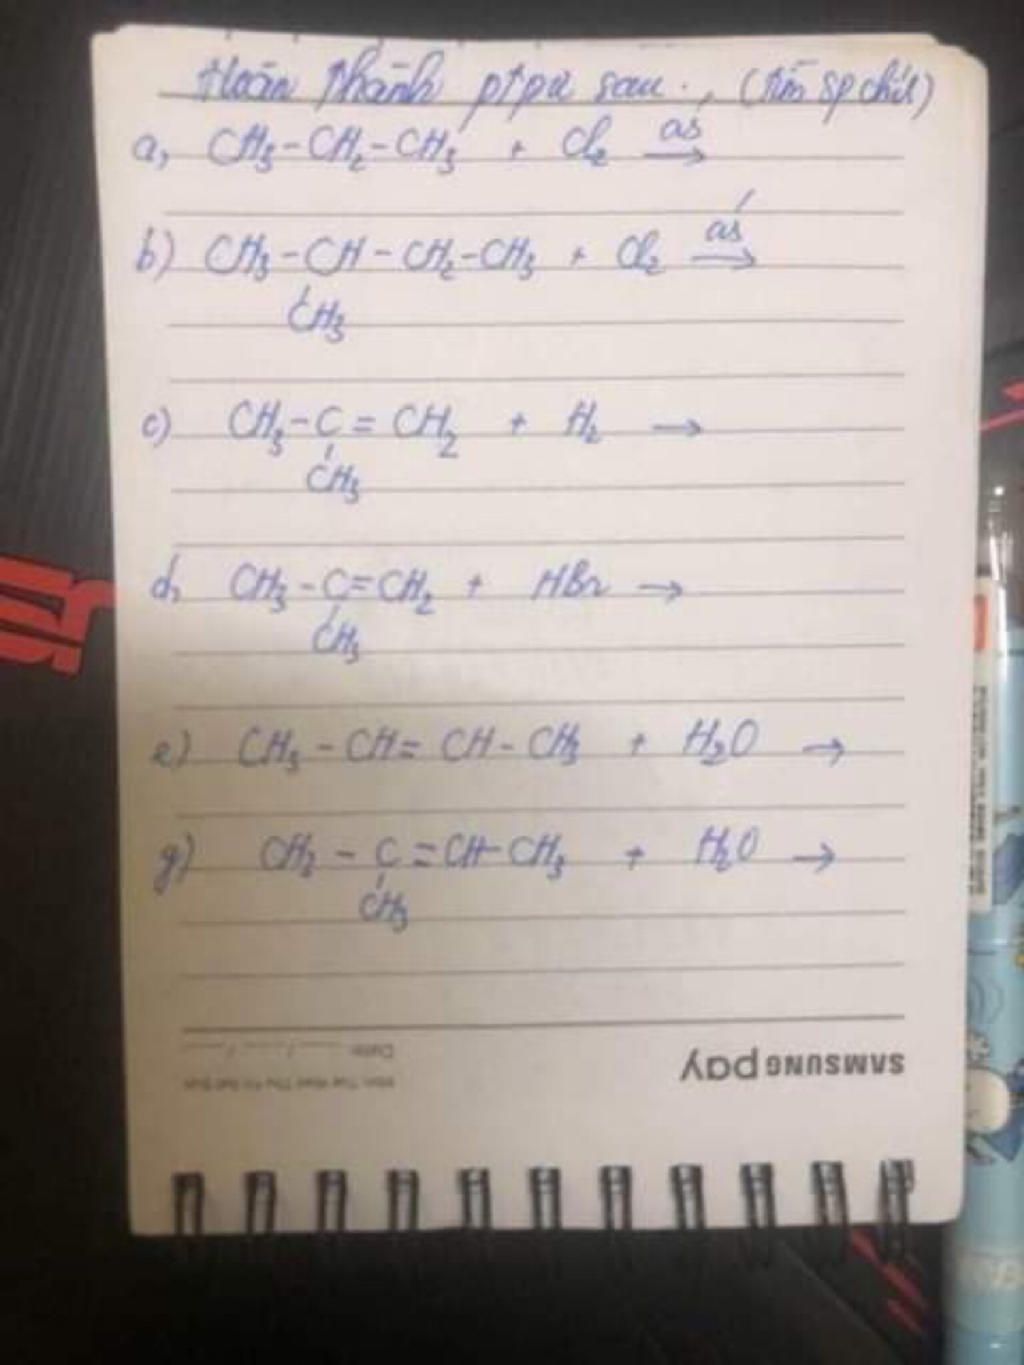 Hoàn thành ptpư sau. (tìm sp chính)
a, CH3-CH2-CH3 + Cl2 as→
b) CH3-CH-CH2-CH3 + Cl2 as→
CH3
c) CH3-C=CH2 + H2 →
CH3
d, CH3-C=CH2 + HBr →
CH3
e) CH3-CH=CH-CH3 + H2O →
g) CH2-C=CH-CH3 + H2O →
CH3
SAMSUNG pay
Date